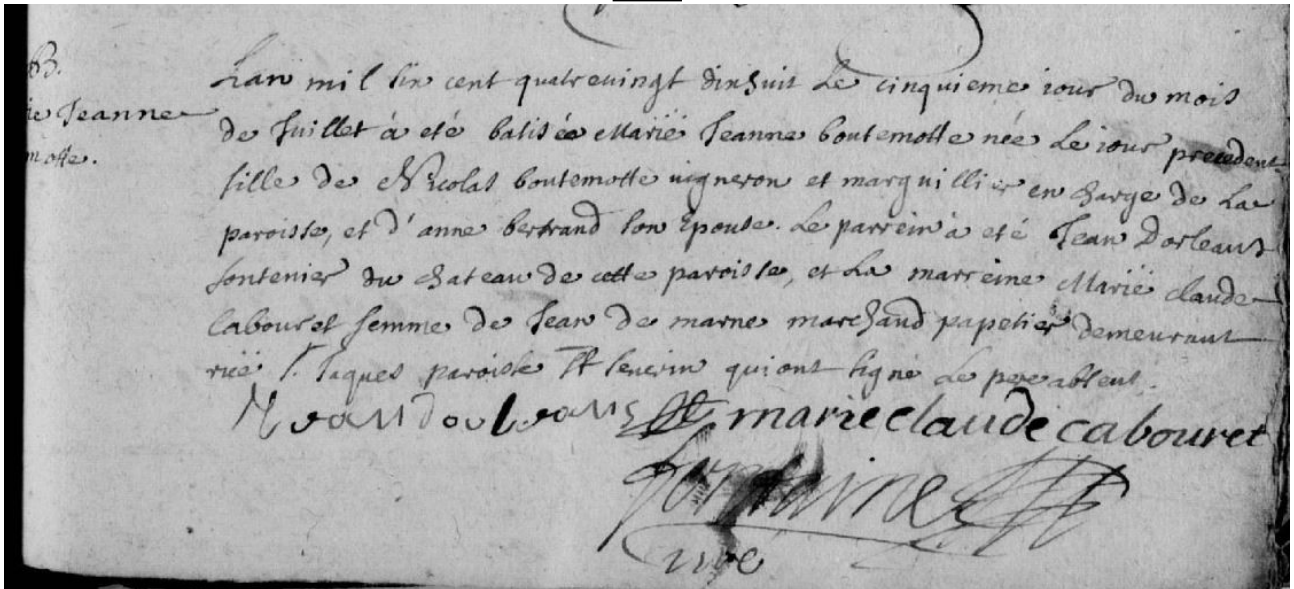 B.
ie Jeanne
motte.
L'an mil six cent quatrevingt dixhuit le cinquieme iour du mois
de Juillet à eté batisée Marië Jeanne boutemotte née le iour precedent
fille de Nicolas boutemotte uigneron et marguillier en charge de La
paroisse, et d'anne bertrand son Epouse. Le parrein à eté Jean Dorleans
fontenier du chateau de cette paroisse, et La marreine Marië claude
Cabouret femme de Jean de marne marchand papetier demeurant
ruë St. Jaques paroisse St seuerin qui ont signé Le pere absent.
Jean dorleans marie claude cabouret
fontaine
curé